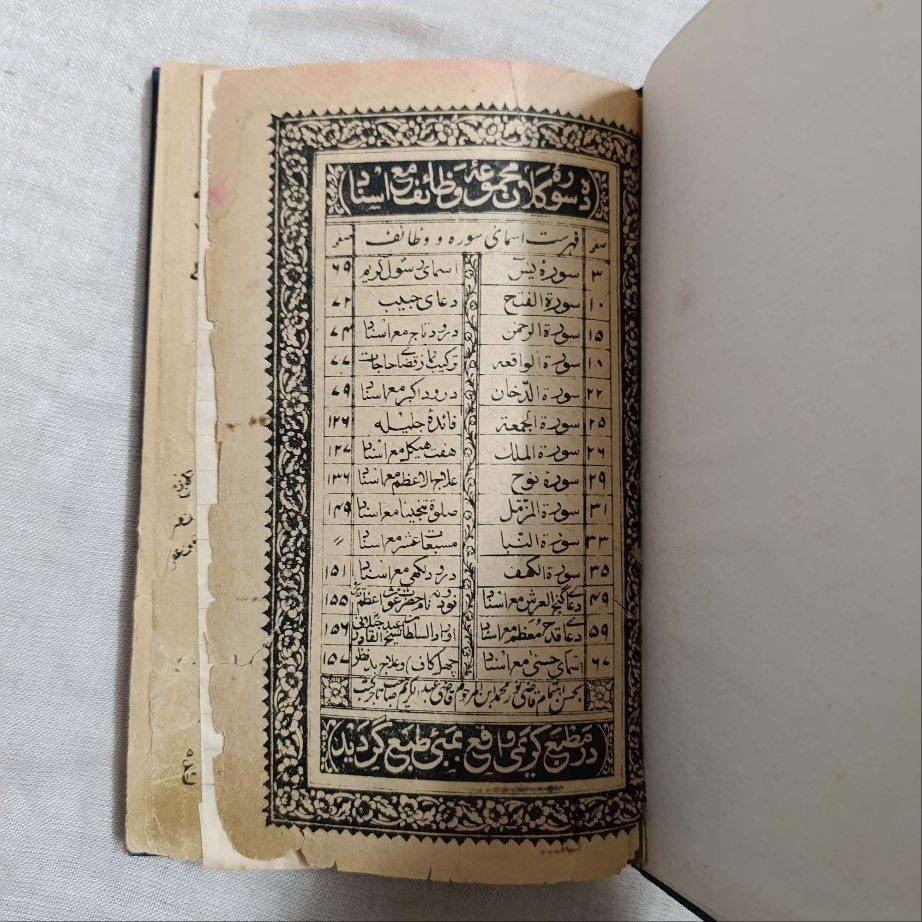 ده سوره کلان مجموعهٔ وظائف مع اسناد
صفحه فهرست اسمای سوره و وظائف صفحه
۳ سورهٔ یٰسٓ اسمای رسول کریم ۶۹
۱۰ سورة الفتح دعای حبیب ۷۲
۱۵ سورة الرحمن درود تاج مع اسناد ۷۴
۱۸ سورة الواقعه ترکیب نماز قضای حاجات ۷۷
۲۲ سورة الدّخان درود اکبر مع اسناد ۷۹
۲۵ سورة الجمعة فائدهٔ جلیله ۱۲۶
۲۶ سورة الملك هفت هیکل مع اسناد ۱۲۷
۲۹ سورهٔ نوح علاج الاعظم مع اسناد ۱۳۶
۳۱ سورة المزّمل صلوٰة تنجینا مع اسناد ۱۴۹
۳۳ سورة النّبا مسبعات عشر مع اسناد ״
۳۵ سورة الکهف درود لکھی مع اسناد ۱۵۱
۴۹ دعای گنج العرش مع اسناد نود و نه نام حضرت غوث اعظم ۱۵۵
۵۹ دعای قدح معظم مع اسناد اوراد السلطان ۱۵۶
۶۷ اسمای حسنی مع اسناد چهل کاف و علاج بد نظر ۱۵۷
بحسن اهتمام قاضی نور محمد ابن المرحوم قاضی عبد الکریم صاحب تاجر کتب
در مطبع کریمی واقع بمبئی طبع گردید